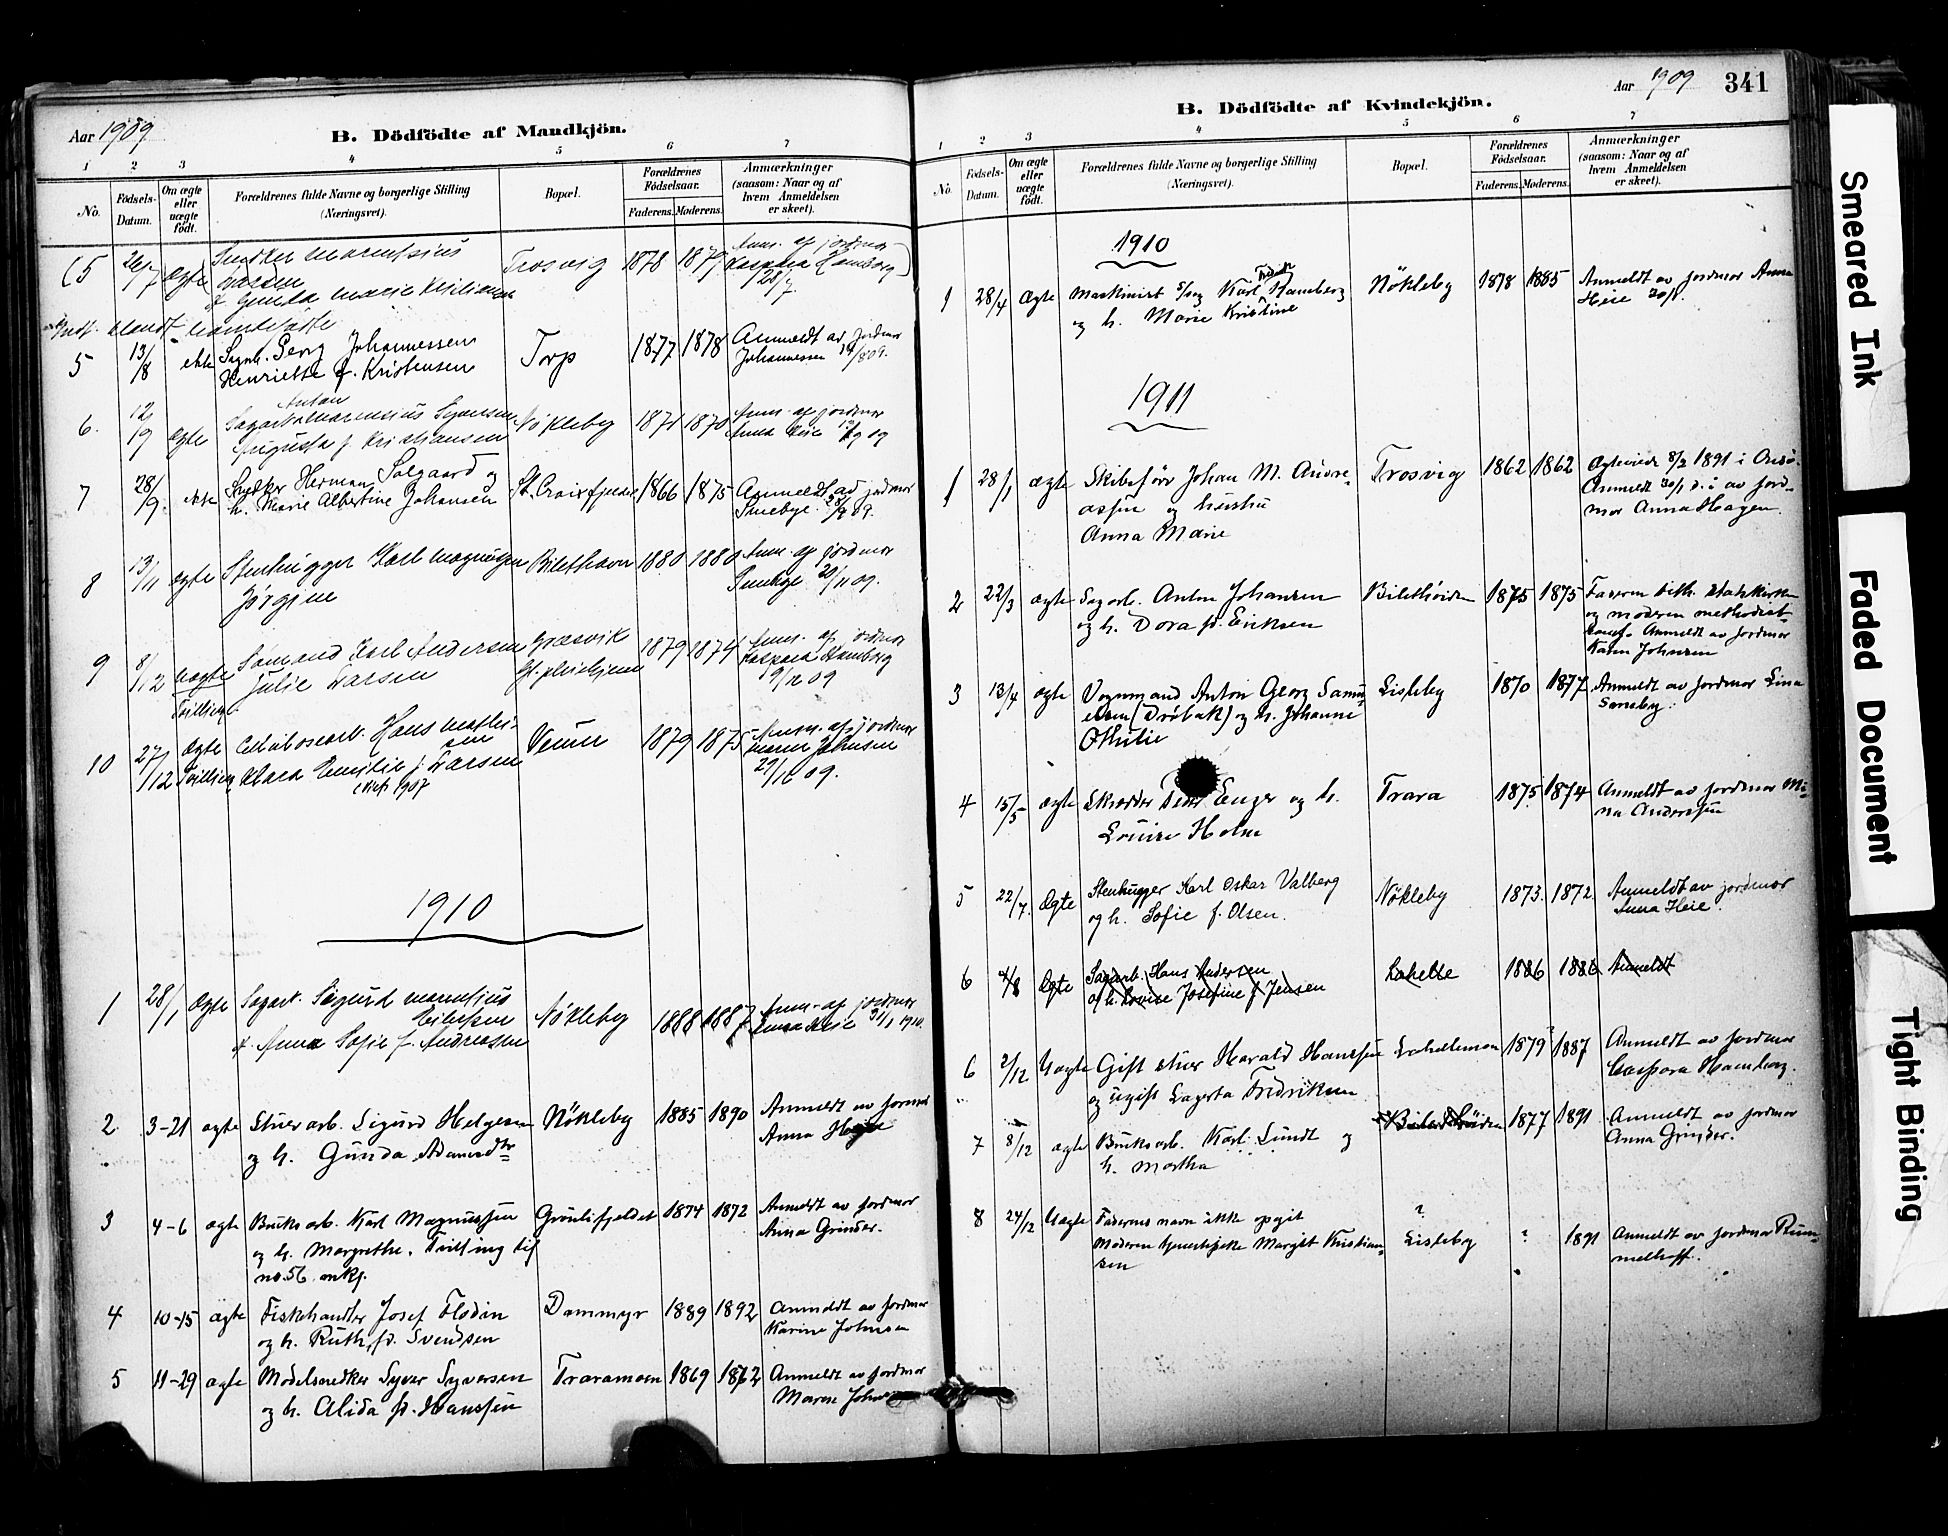 Aar 1909
B. Dödfödte af Mandkjön.
1 2 3 4 5 6 7
No.
Födsels-Datum.
Om ægte eller uægte födt.
Forældrenes fulde Navne og borgerlige Stilling (Næringsvei).
Bopæl.
Forældrenes Födselsaar.
Faderens. Moderens.
Anmærkninger (saasom: Naar og af hvem Anmeldelsen er skeet).
(5 26/7 ægte Snedker Marentsius Trosvig 1878 1879 Anm. af jordmor
Larsen Kaspara Hamborg)
f. Gunda Marie Kristiansen 28/7.
Indf. blandt levendefödte
5 13/8 ekte Sagarb. Georg Johannessen Torp 1877 1878 Anmeldt av jordmor
Henriette f. Kristensen Johannessen 14/8 09.
Anton
6. 12/9 ægte Sagarb. Marensius Syversen Nökleby 1871 1870 Anm. af jordmor
Augusta f. Kristiansen Anna Heie 09
7 28/9. ekte Snedker Herman Solgaard og St. Croixfjeldet 1866 1875 Anmeldt av jordmor
h. Marie Albertine Johansen Smebye 28/9 09.
8 13/11 ægte Stenhugger Karl Magnussen Bilethavn 1880 1880 Anm. af jordmor
Jörgine Smebye 20/11 09.
9 8/12 uægte Sömand Karl Andersen Græsvik 1879 1874 Anm. af jordmor
Julie Larsen Kaspara Hamborg
Tvilling. 9/12 09
10 27/12 ægte Celulosearb. Hans Mathis- Veum 1879 1875 Anm. af jordmor
sen Maren Johnsen
Tvilling Klara Emilie f. Larsen 29/12 09.
1907
1910
1 28/1 ægte Sagarb. Sigurd Marentius Nökleby 1888 1887 Anm. af jordmor
Eilertsen Anna Heie 31/1 1910.
f. Anna Sofie f. Andreassen
2 3-21 ægte Stuerarb. Sigurd Helgesen Nökleby 1885 1890 Anmeldt av jormor
og h. Gunda Adamsdtr Anna
3 4-6 ægte Bruksarb. Karl Magnussen Grönlifjeldet 1874 1872 Anmeldt av jordmor
og h. Margrethe. Tvilling til Anna Grinder.
no. 56 mkj.
4 10-15 ægte Fiskehandler Josef Flodin Dammyr 1889 1892 Anmeldt av jordmor
og h. Ruth, f. Svendsen Karine Johnsen
5 11-29 ægte Modelsnedker Syver Syversen Traramoen 1869 1872 Anmeldt av jordmor
og h. Alida f. Hanssen Maren
Aar 1909 341
B. Dödfödte af Kvindekjön.
1 2 3 4 5 6 7
No.
Födsels-Datum.
Om ægte eller uægte födt.
Forældrenes fulde Navne og borgerlige Stilling (Næringsvei).
Bopæl.
Forældrenes Födselsaar.
Faderens. Moderens.
Anmærkninger (saasom: Naar og af hvem Anmeldelsen er skeet).
1910
1 28/4 ægte Maskinist Karl Hamberg Nökleby 1878 1885 Anmeldt av jordmor Anna
og h. Marie Kristine Heie
1911
1 28/1 ægte Skibsförer Johan M. Andre- Trosvig 1862 1862 Ægteviede 8/2 1891 i Onsö.
assen og hustru Anmeldt 30/1 d. å av jord-
Anna Marie mor Anna Hagen.
2 22/3 ægte Sagarb. Anton Johansen Bilethöiden 1875 1875 Faderen tilh. statskirken
og h. Dora f. Eriksen og moderen methodist-
samf. Anmeldt av jordmor
Karen Johnsen
3 13/4 ægte Vognmand Anton Georg Samu- Lisleby 1870 1877 Anmeldt av jordmor Lina
elsen (Dröbak) og h. Johanne
Othilie
4 15/5 ægte Skrædder Peder Enger og h. Trara 1875 1874 Anmeldt av jordmor Mi-
Lovise Holm na Anderssen
5 22/7. Ægte Stenhugger Karl Oskar Valberg Nökleby 1873. 1872. Anmeldt av jordmor
og h. Sofie f. Olsen. Anna Heie.
6 4/8 Ægte Sagarb. Hans Andersen Lahelle 1886 1886 Anmeldt
og h. Lovise Josefine f. Jensen
6 2/12 Uægte Gift stuer Harald Hanssen Lahellemoen 1879 1887 Anmeldt av jordmor
og ugift Lagerta Fredriksen Caspara Hamborg.
7 8/12 ægte Bruksarb. Karl Lundt og 1877 1891 Anmeldt av jordmor
h. Martha Anna Grinder.
8 24/12 Uægte Faderens navn ikke opgit ?
Moderen tjenestepike Margit Kristian- Lisleby ? 1891 Anmeldt av jordmor Rum-
sen melhoff.
Smeared Ink
Faded Document
Tight Binding